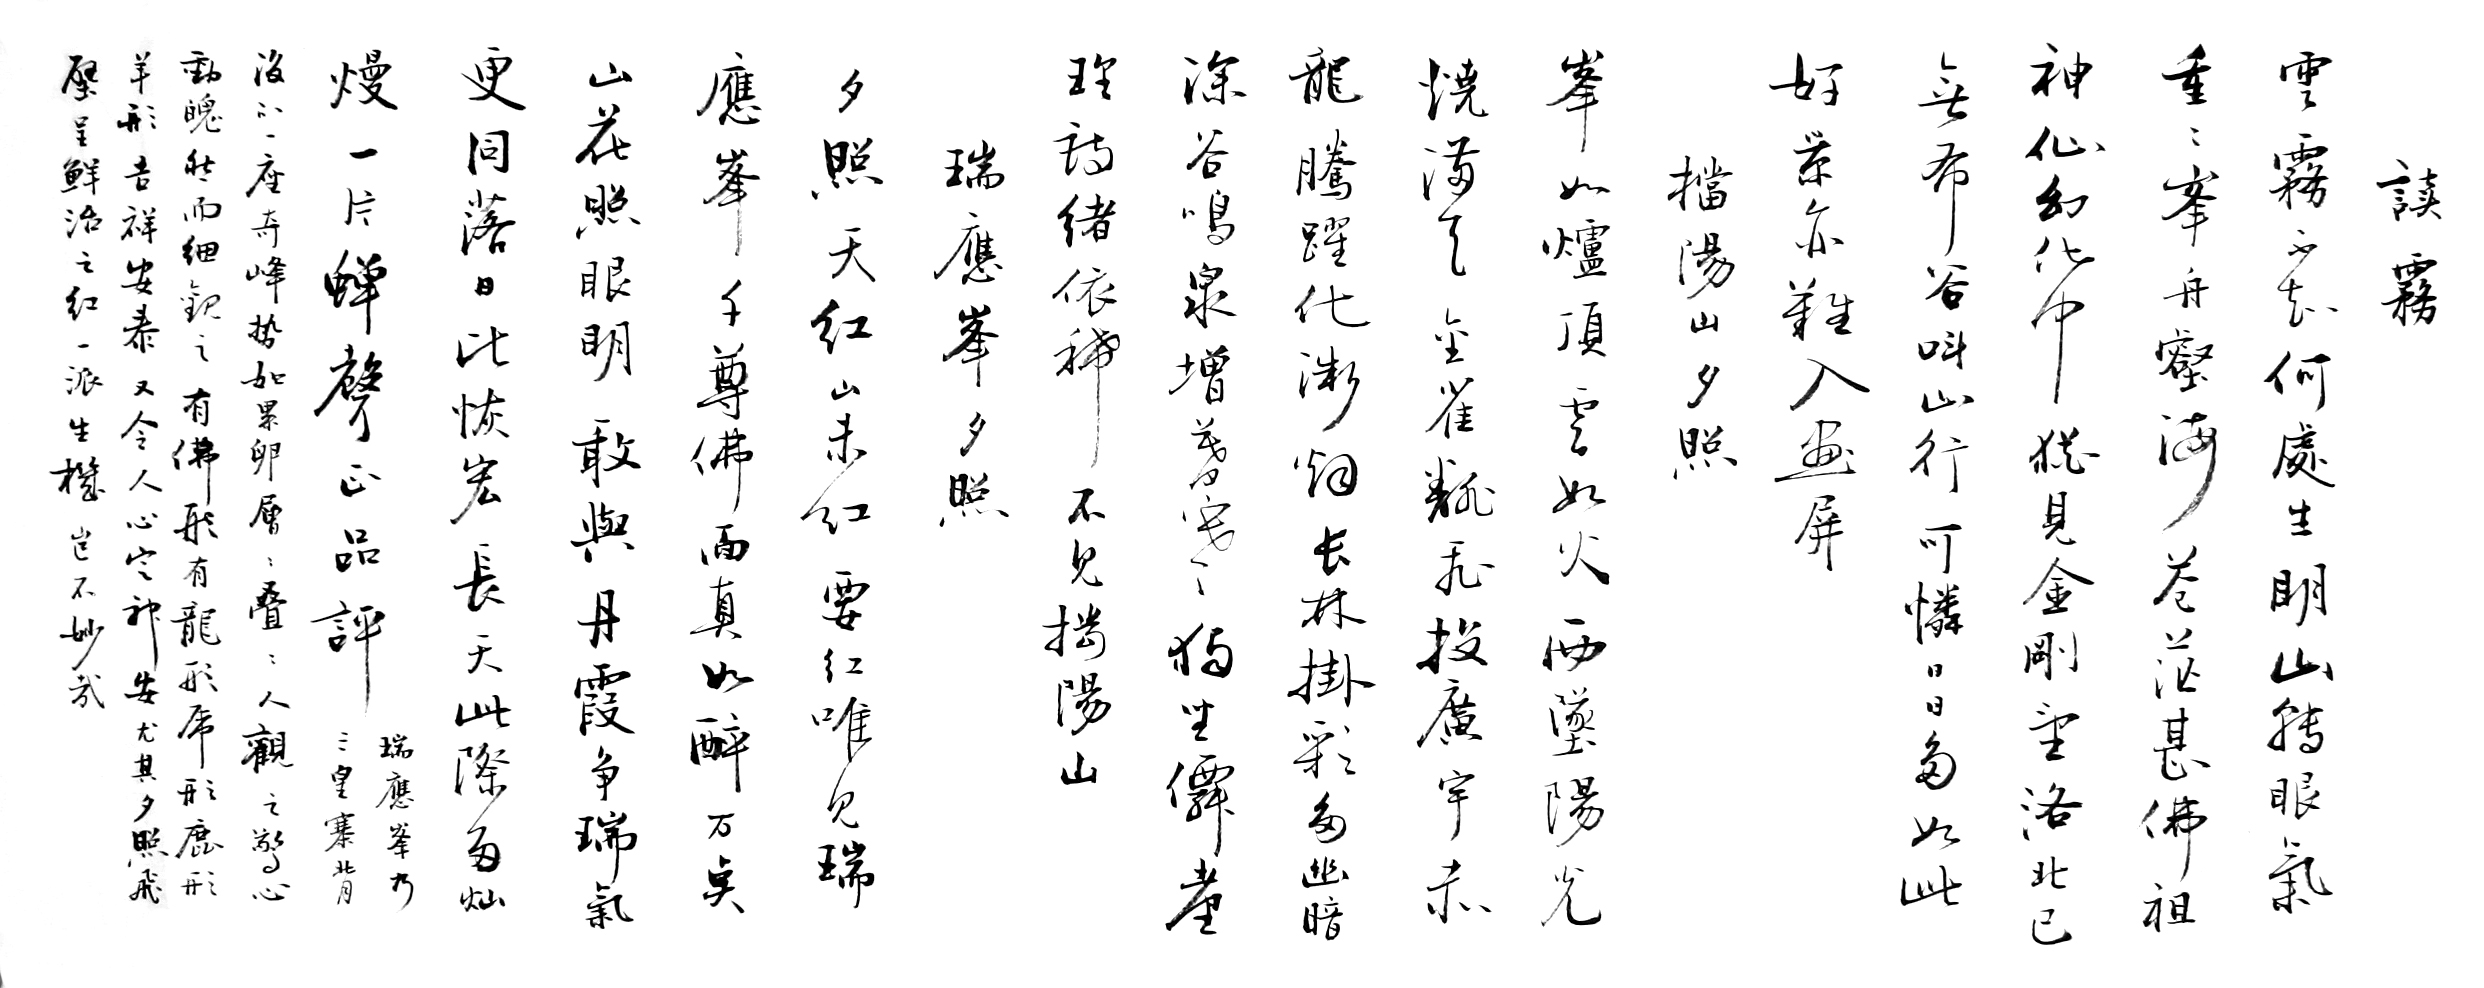 談霧
雲霧不知何處生明山轉眼氣
重〻峯舟壑海蒼茫甚佛祖
神仙幻化中猶見金剛望洛北已
無布谷叫山行可憐日日多如此
好景亦難入畫屏
擋陽山夕照
峯如爐頂雲如火西墜陽光
燒滿天金雀亂飛投廣宇赤
龍騰躍化漸烟長林掛彩多幽暗
深谷鳴泉增暮寒〻獨坐僻崖
理詩緒依稀不見擋陽山
瑞應峯夕照
夕照天紅山未紅要紅唯見瑞
應峯千尊佛面真如醉万点
山花照眼明敢與丹霞争瑞氣
更同落日比恢宏長天此際多燦
熳一片蟬聲正品評
瑞應峯乃
三皇寨背
後的一座奇峰勢如累卵層〻叠〻人觀之驚心
動魄然而細觀之有佛形有龍形虎形鹿形
羊形吉祥安泰又令人心定神安尤其夕照飛
壁呈鮮治之紅一派生機豈不妙哉